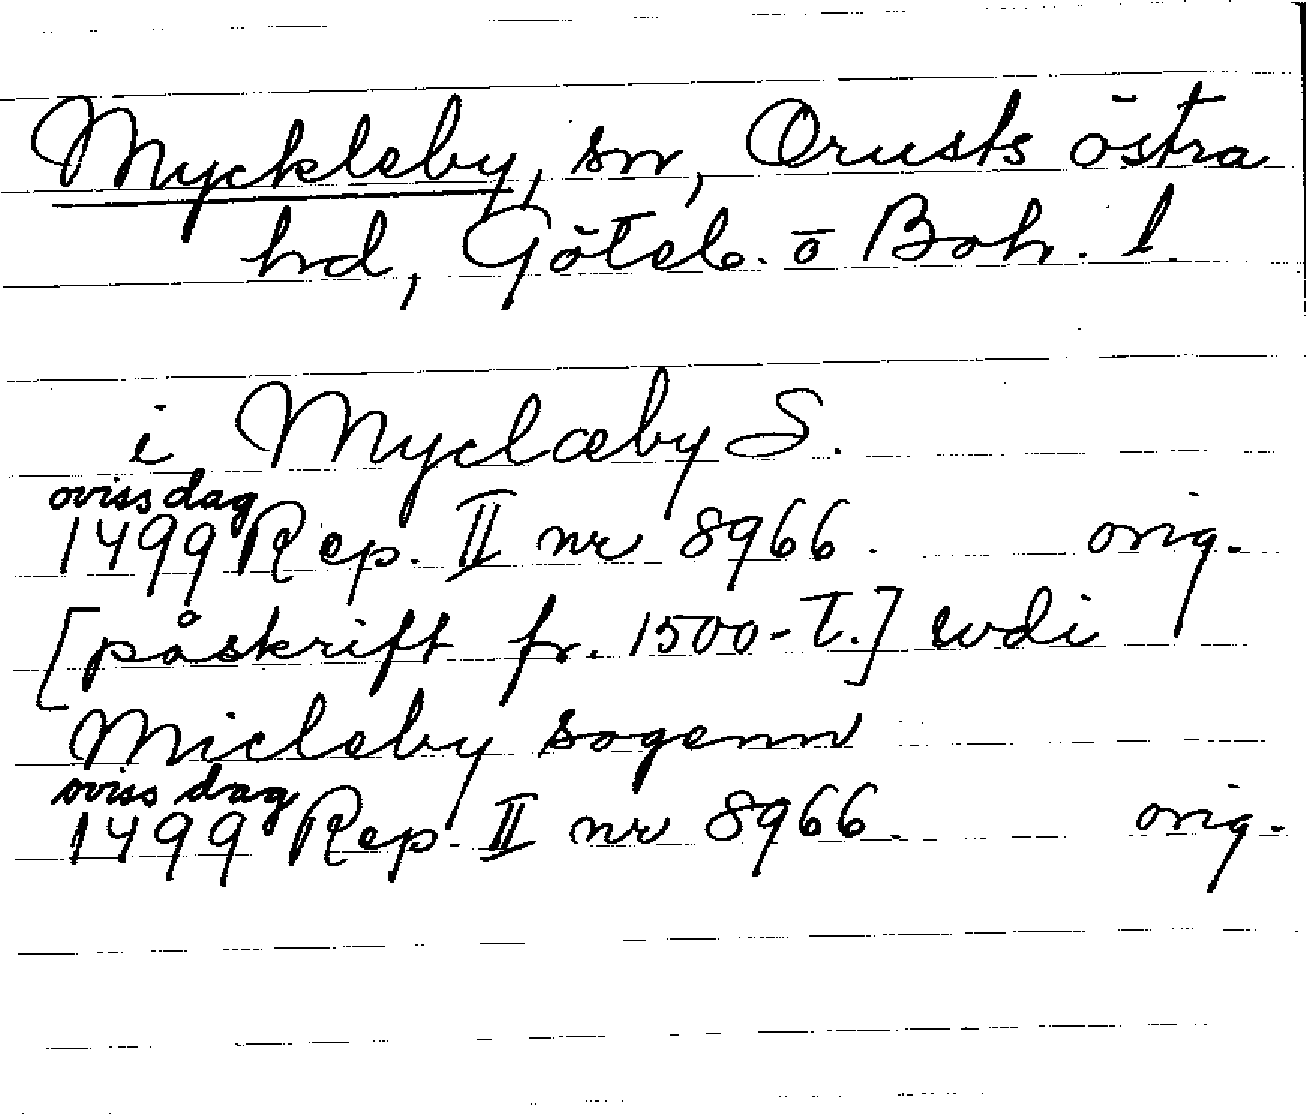 Myckleby, sn, Orusts östra
hd, Göteb. o Boh. l.
i Myclæby S.
oviss dag
1499 Rep. II nr 8966. orig.
[påskrift fr. 1500-T.] wdi
Micleby sogenn
oviss dag
1499 Rep. II nr 8966. orig.